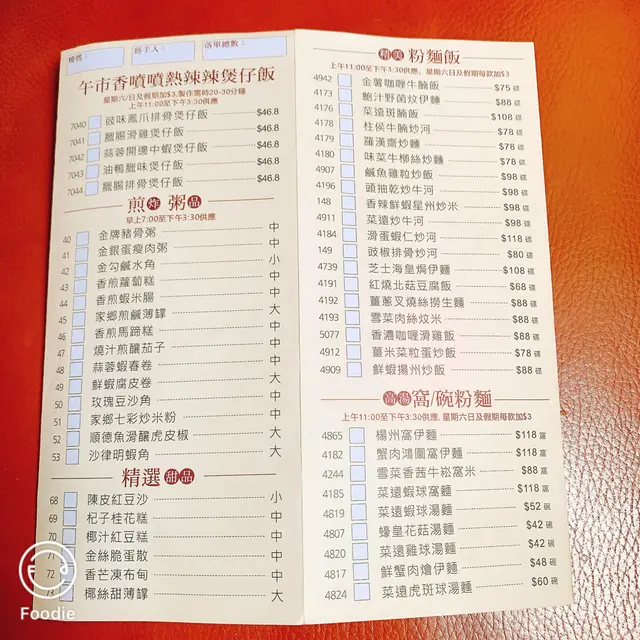 檯號：
經手人：
落單總數：
午市香噴噴熱辣辣煲仔飯
星期六/日及假期加$3,製作需時20-30分鐘
上午11:00至下午3:30供應
7040 豉味鳳爪排骨煲仔飯 $46.8
7041 臘腸滑雞煲仔飯 $46.8
7042 蒜蓉開邊中蝦煲仔飯 $46.8
7043 油鴨臘味煲仔飯 $46.8
7044 臘腸排骨煲仔飯 $46.8
煎炸粥品
早上7:00至下午3:30供應
40 金牌豬骨粥 中
41 金銀蛋瘦肉粥 中
42 金勾鹹水角 小
43 香煎蘿蔔糕 中
44 香煎蝦米腸 中
45 家鄉煎鹹薄罉 大
46 香煎馬蹄糕 中
47 燒汁煎釀茄子 中
48 蒜蓉蝦春卷 中
49 鮮蝦腐皮卷 大
50 玫瑰豆沙角 中
51 家鄉七彩炒米粉 中
52 順德魚滑釀虎皮椒 大
53 沙律明蝦角 大
精選甜品
68 陳皮紅豆沙 小
69 杞子桂花糕 中
70 椰汁紅豆糕 中
金絲脆蛋散 中
72 香芒凍布甸 中
73 椰絲甜薄罉 大
精美粉麵飯
上午11:00至下午3:30供應，星期六日及假期每款加$3
4942 金薯咖喱牛腩飯 $75 碟
4173 鮑汁野菌炆伊麵 $88 碟
4176 菜遠斑腩飯 $108 碟
4178 柱侯牛腩炒河 $78 碟
4179 羅漢齋炒麵 $78 碟
4180 味菜牛柳絲炒麵 $78 碟
4907 鹹魚雞粒炒飯 $98 碟
4196 頭抽乾炒牛河 $98 碟
148 香辣鮮蝦星州炒米 $98 碟
4911 菜遠炒牛河 $98 碟
4184 滑蛋蝦仁炒河 $118 碟
149 豉椒排骨炒河 $80 碟
4739 芝士海皇焗伊麵 $108 碟
4191 紅燒北菇豆腐飯 $68 碟
4192 薑蔥叉燒絲撈生麵 $88 碟
4193 雪菜肉絲炆米 $88 碟
5077 香濃咖喱滑雞飯 $88 碟
4912 薑米菜粒蛋炒飯 $78 碟
4909 鮮蝦揚州炒飯 $88 碟
高湯窩/碗粉麵
上午11:00至下午3:30供應, 星期六日及假期每款加$3
4865 楊州窩伊麵 $118 窩
4182 蟹肉鴻圖窩伊麵 $118 窩
4244 雪菜香茜牛崧窩米 $88 窩
4185 菜遠蝦球窩麵 $118 窩
4819 菜遠蝦球湯麵 $52 碗
4807 蠔皇花菇湯麵 $42 碗
4820 菜遠雞球湯麵 $42 碗
4817 鮮蟹肉燴伊麵 $48 碗
4824 菜遠虎斑球湯麵 $60 碗
Foodie